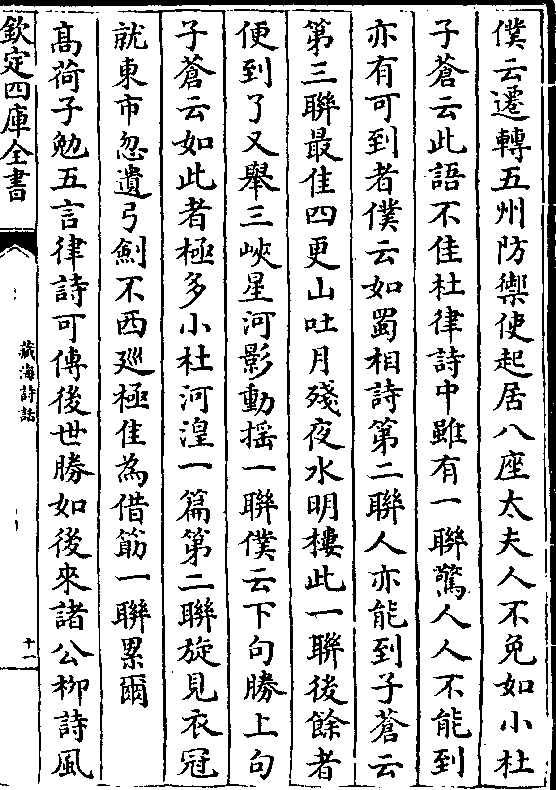 僕云遷轉五州防禦使起居八座太夫人不免如小杜
子蒼云此語不佳杜律詩中雖有一聯驚人人不能到
亦有可到者僕云如蜀相詩第二聯人亦能到子蒼云
第三聯最佳四更山吐月殘夜水明樓此一聯後餘者
便到了又舉三峽星河影動搖一聯僕云下句勝上句
子蒼云如此者極多小杜河湟一篇第二聯旋見衣冠
就東市忽遺弓劍不西廵極佳為借筯一聯累爾
髙荷子勉五言律詩可傳後世勝如後來諸公柳詩風
欽定四庫全書
藏海詩話
十一